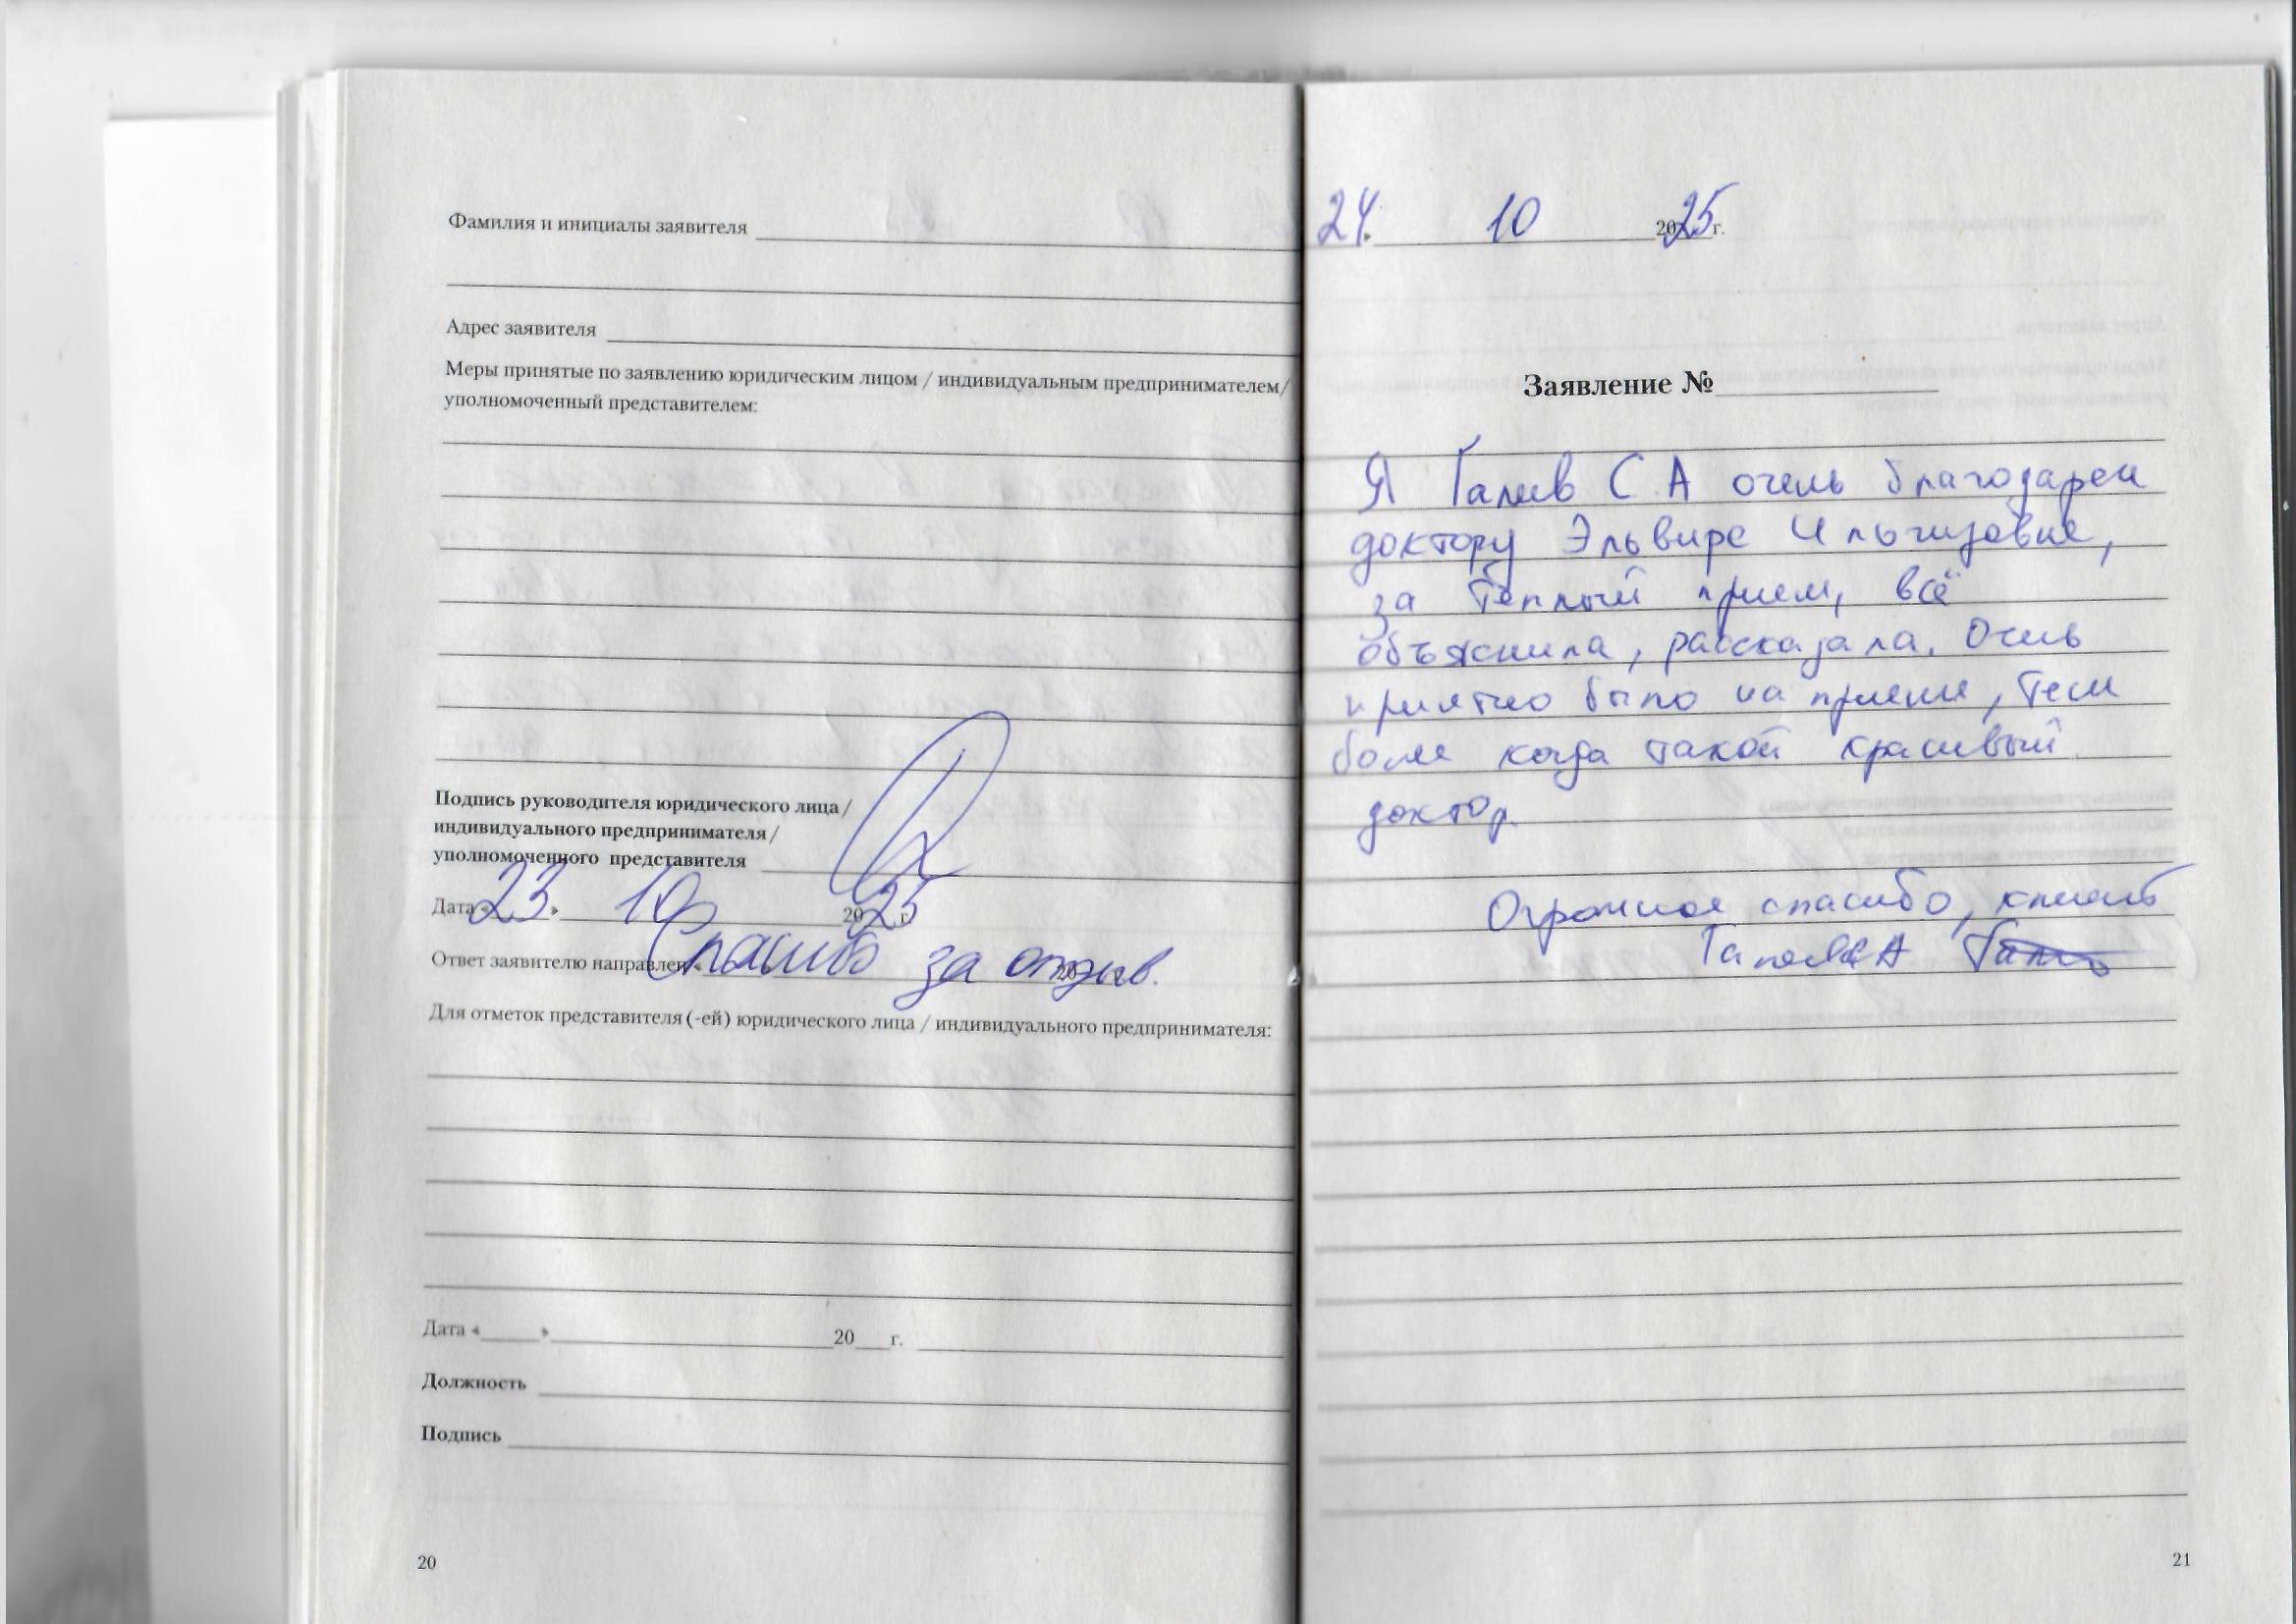 Фамилия и инициалы заявителя
Адрес заявителя
Меры принятые по заявлению юридическим лицом / индивидуальным предпринимателем/
уполномоченный представителем:
Подпись руководителя юридического лица /
индивидуального предпринимателя /
уполномоченного представителя
Дата « 23 » 10 2025 г.
Ответ заявителю направлен « 20
Спасибо за отзыв.
Для отметок представителя (-ей) юридического лица / индивидуального предпринимателя:
Дата « » 20 г.
Должность
Подпись
20
24. 10 2025 г.
Заявление №
Я Галиев С.А очень благодарен
доктору Эльвире Ильгизовне,
за тёплый прием, всё
объяснила, рассказала. Очень
приятно было на приеме, тем
более когда такой красивый
доктор
Огромное спасибо, клиент
Галиев С.А
21